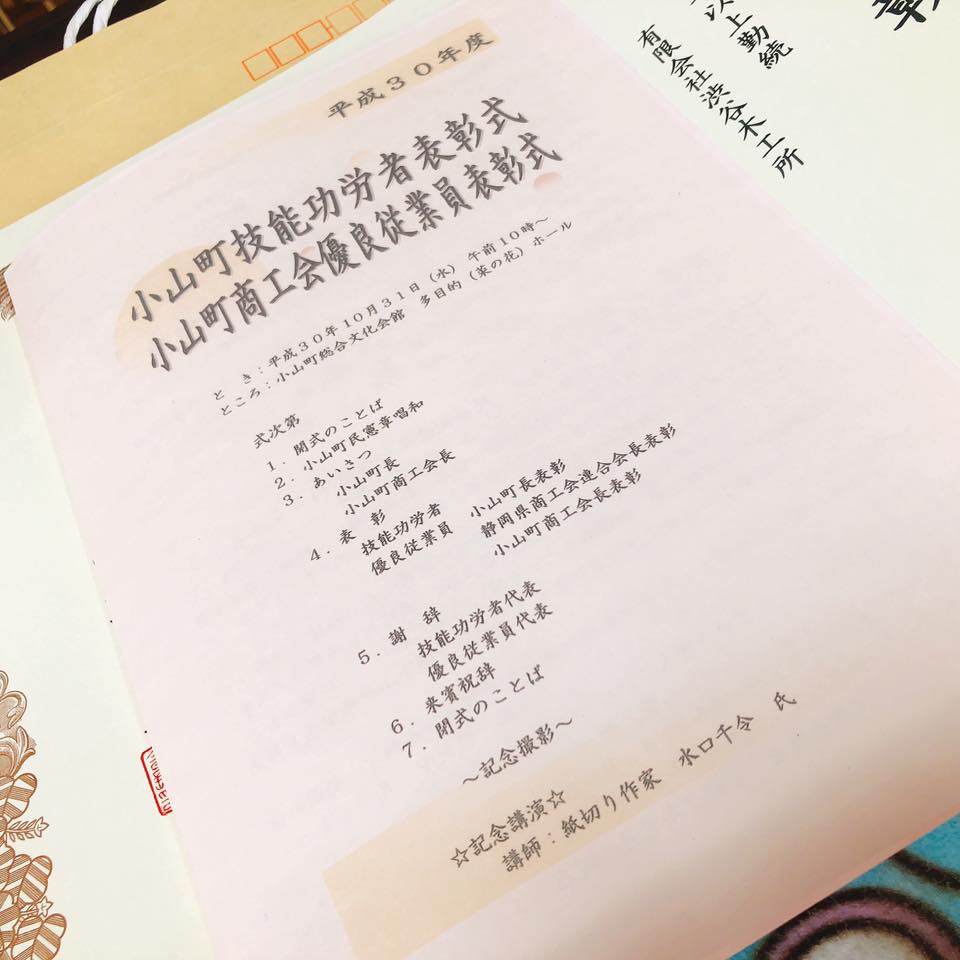 平成30年度
小山町技能功労者表彰式
小山町商工会優良従業員表彰式
と き：平成30年10月31日（水） 午前10時～
ところ：小山町総合文化会館 多目的（菜の花）ホール
式次第
1．開式のことば
2．小山町民憲章唱和
3．あいさつ
小山町長
小山町商工会長
4．表 彰
技能功労者 小山町長表彰
優良従業員 静岡県商工会連合会長表彰
小山町商工会長表彰
5．謝 辞
技能功労者代表
優良従業員代表
6．来賓祝辞
7．閉式のことば
～記念撮影～
☆記念講演☆
講師：紙切り作家 水口千令 氏
以上勤続
有限会社渋谷木工所